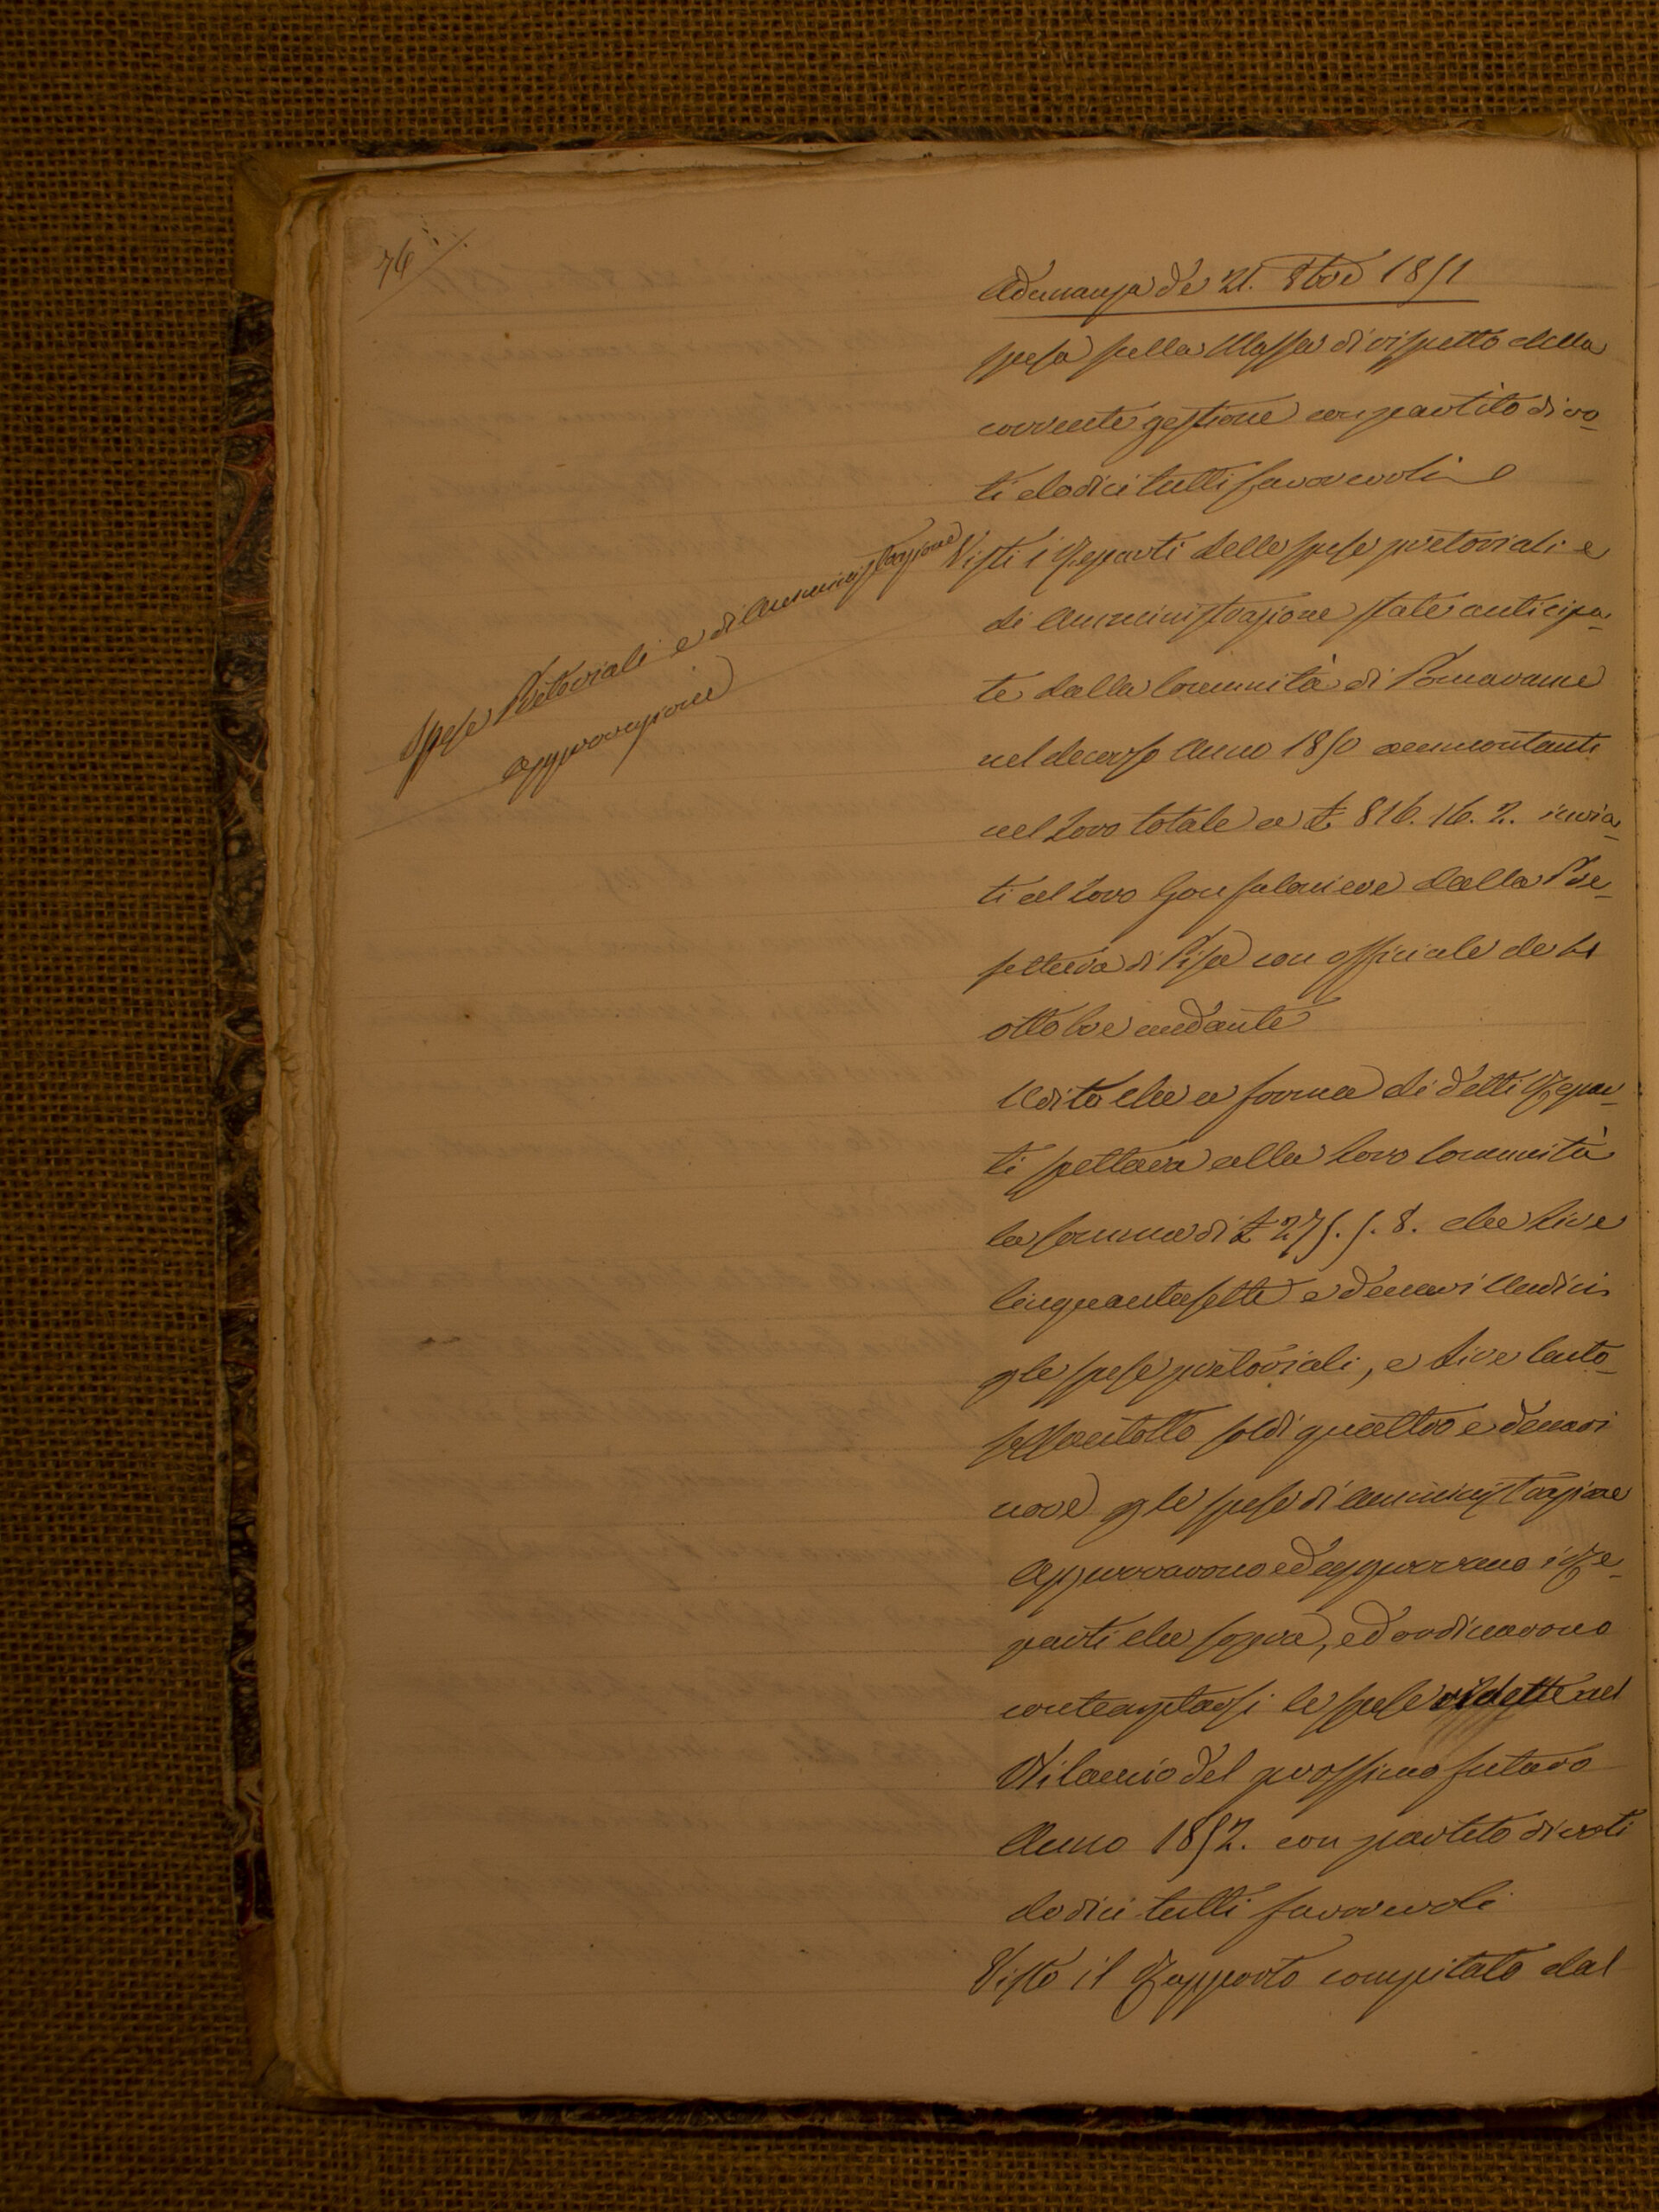 76
Adunanza de 21. 8bre 1851
spesa sulla Massa di rispetto della
corrente gestione con partito di vo_
ti dodici tutti favorevoli
Spese Pretoriali e di Amministrazione
approvazione
Visti i Reparti delle spese pretoriali e
di Amministrazione state anticipa_
te dalla Comunità di Pomarance
nel decorso Anno 1850 ammontanti
nel Loro totale a £. 816. 16. 2. invia_
ti al Loro Gonfaloniere dalla Pre_
fettura di Pisa con officiale de
ottobre andante
Udito che a forma di detti Repar_
ti spettava alla Loro Comunità
la somma di £ 275. 5. 8. che Lire
Cinquantasette e denari Undici
p le spese pretoriali, e Lire Cento_
sessantotto soldi quattro e denari
nove p le spese di Amministrazione
Approvarono ed approvano i Re_
parti che sopra, ed ordinarono
conteggiarsi le spese nel
Bilancio del prossimo futuro
Anno 1852. con partito di voti
dodici tutti favorevoli
Visto il Rapporto compilato dal